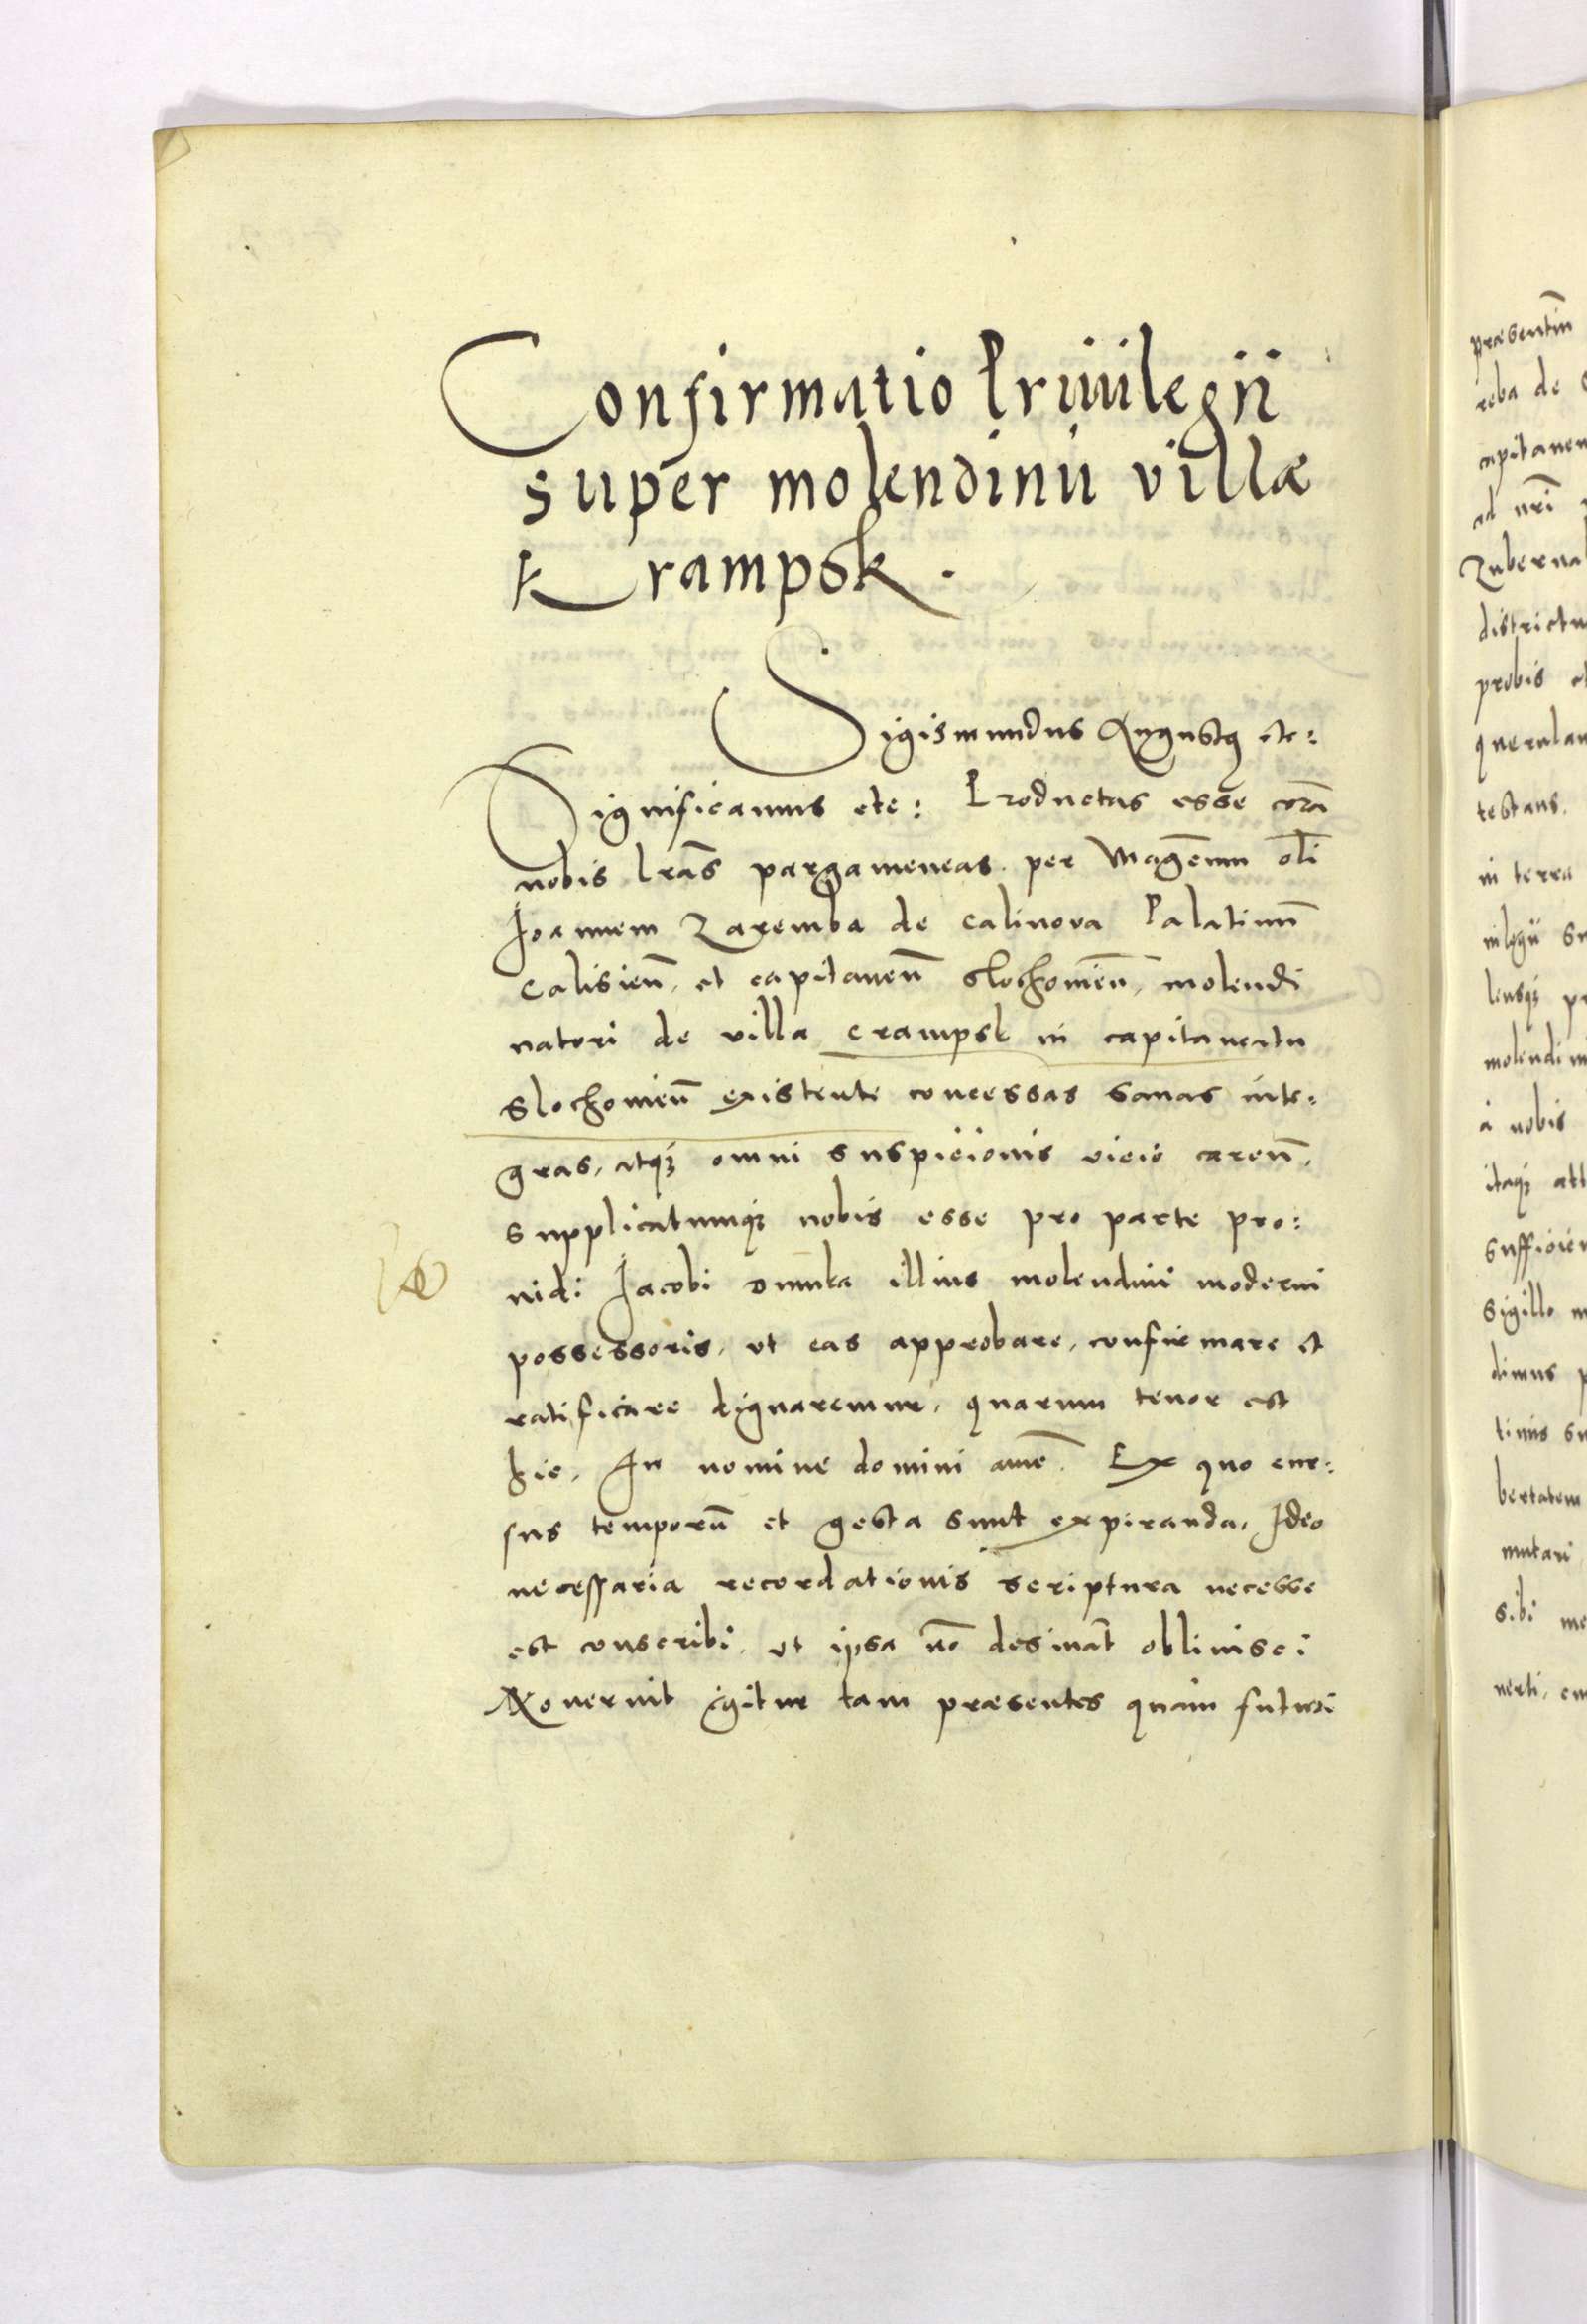 Confirmatio Priuilegii
super molendinū villæ
Krampsk.
Sigismundus Augustq etc:
Significamus etc: Productas esse corā
nobis lrās pargameneas per Magcum oli
Joannem Zaremba de Calinova Palatinū
Calisien̄, et capitaneū Slochoviēn, molendi
natori de villa Crampsk in capitaneatu
Slochovien̄ existente concessas sanas inte:
gras, atq3 omni suspicionis vicio caren̄,
supplicatumq3 nobis esse pro parte pro:
uidi Jacobi illius molendini moderni
possessoris, vt eas approbare, confirmare et
ratificare dignaremur, quarum tenor est
hic, In nomine domini amē. Ex quo cur:
sus temporū et gesta sunt expiranda, Ideo
necessaria recordationis scriptura necesse
est conscribi, vt ipsa nō desinat obliuisci
Nouerint igitur tam præsentes quam futuri
præsentiū
reba de
capitaneu
ad nri
districtu
probis et
querulan
testans.
in terra
uilegii su
molendini
à nobis
itaq3 att
sufficien
sigillo m
dimus p
bertatem
mutari
sibi me